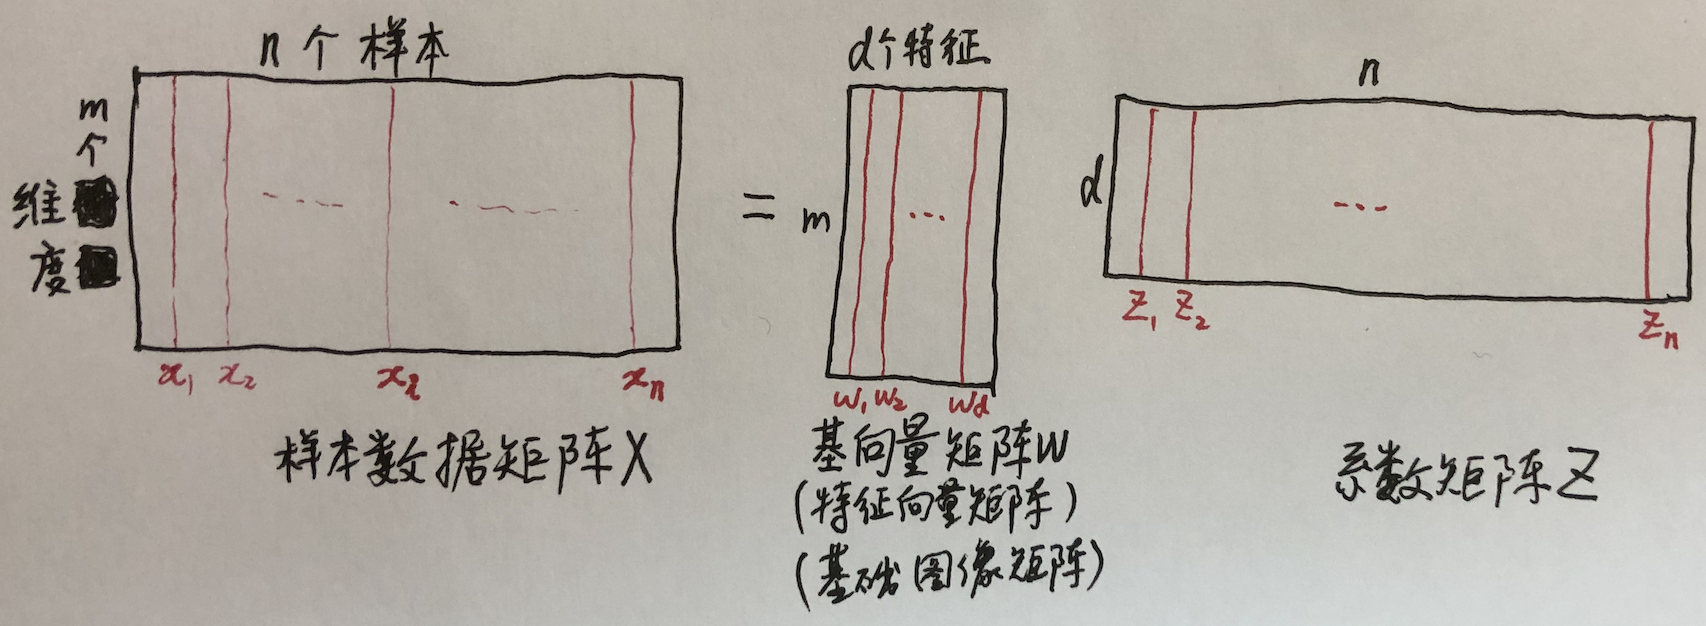 n个样本
m个维度
x₁ x₂ xᵢ xₙ
样本数据矩阵X
=
d个特征
m
...
w₁ w₂ wd
基向量矩阵W
(特征向量矩阵)
(基础图像矩阵)
n
d
...
z₁ z₂ zₙ
系数矩阵Z